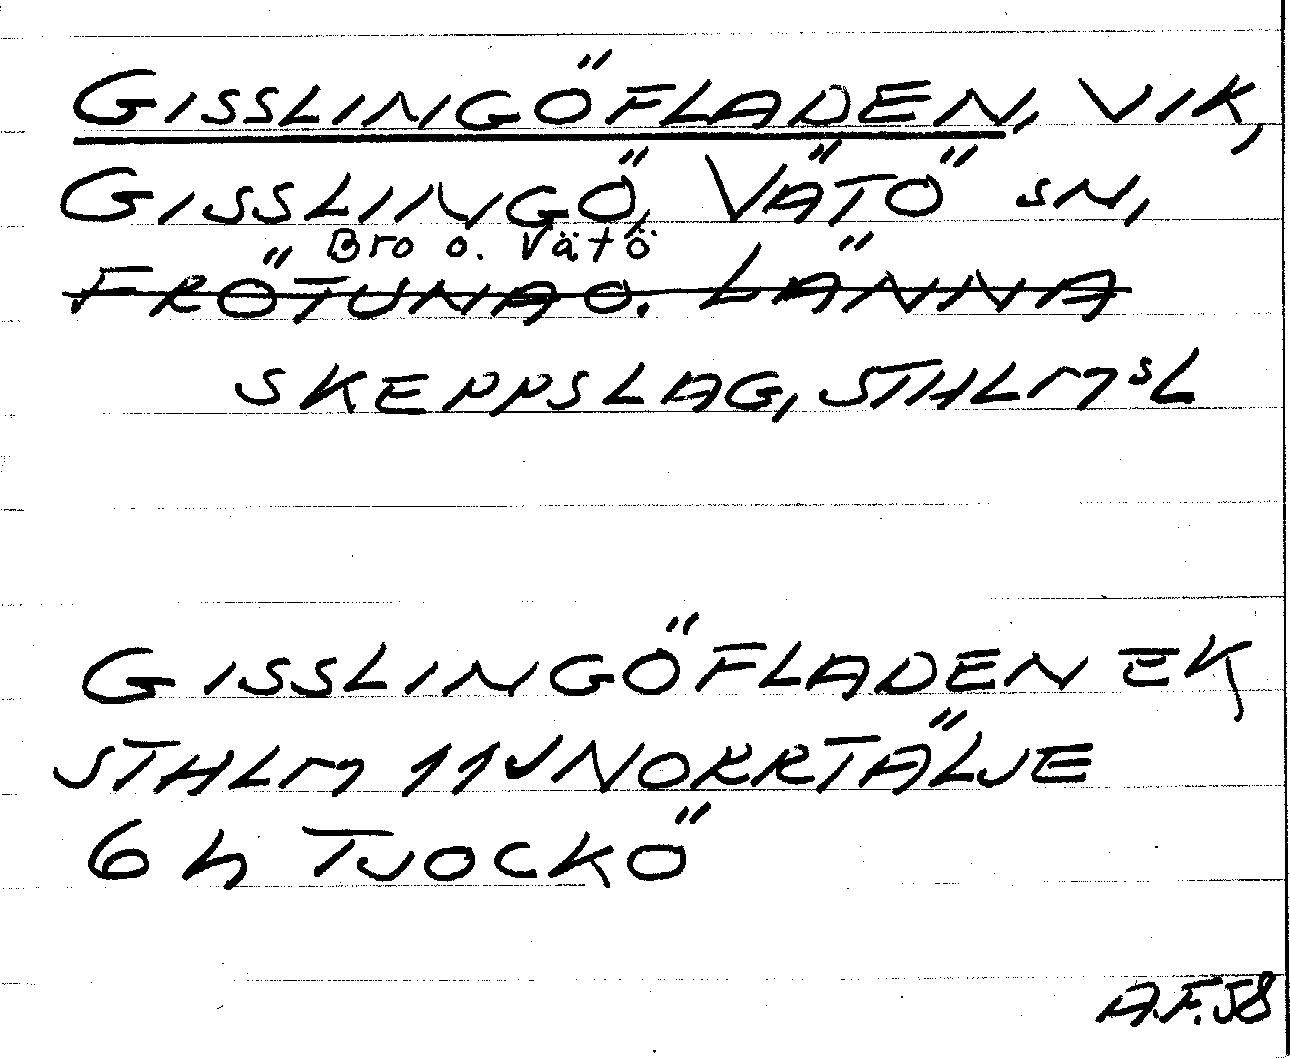 GISSLINGÖFLADEN, VIK,
GISSLINGÖ, VÄTÖ SN,
Bro o. Vätö
FRÖTUNA O. LÄNNA
SKEPPSLAG, STHLMSL
GISSLINGÖFLADEN EK
STHLM 11J NORRTÄLJE
6 h TJOCKÖ
A.F. 58